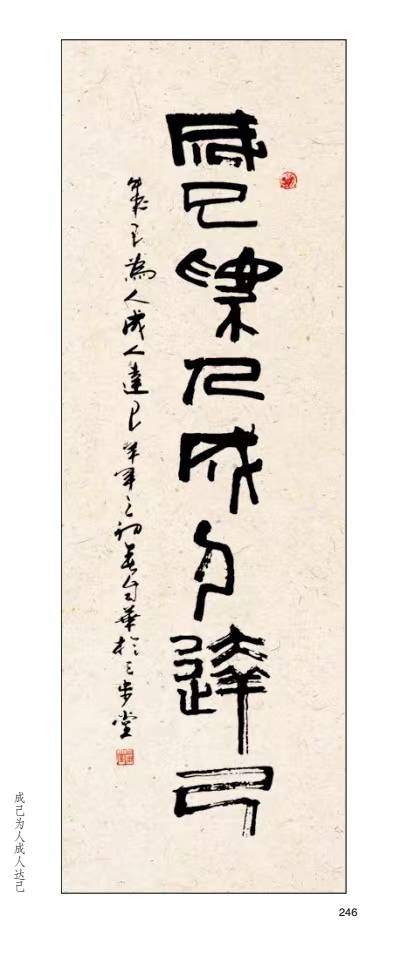 成己為人成人達己
成己為人成人達己之初春自華於三步堂
成己为人成人达己
246